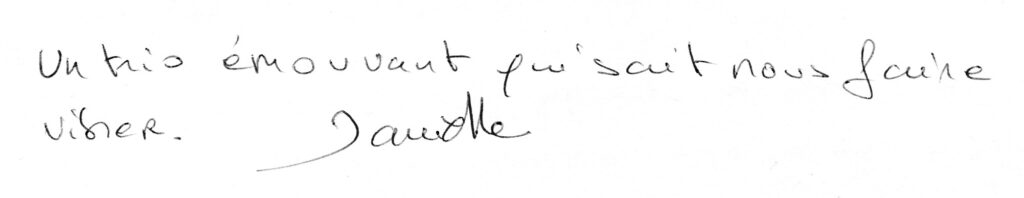 Un trio émouvant qui sait nous faire
vibrer. Danielle